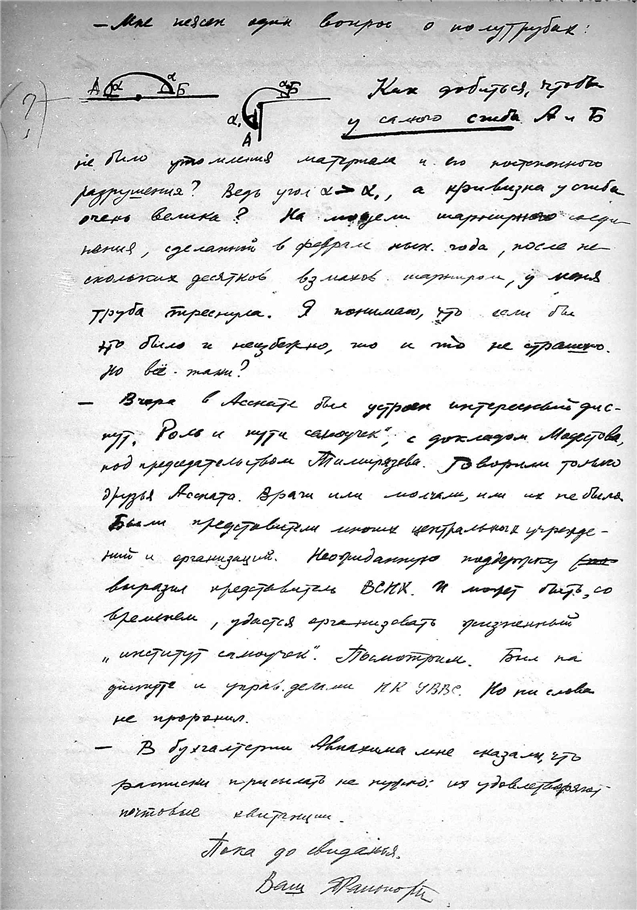 — Мне неясен один вопрос о полутрубах:
А α α Б
α Б
α₁
А
(?)
Как добиться, чтобы
у самого сгиба А и Б
не было утомления материала и его постепенного
разрушения? Ведь угол α > α₁, а кривизна у сгиба
очень велика? На модели шарнирного соеди-
нения, сделанной в феврале нын. года, после не-
скольких десятков взмахов шарниром, у меня
труба треснула. Я понимаю, что если бы
это было и неизбежно, то и то не страшно.
Но всё-таки?
— Вчера в Асснате был устроен интересный дис-
пут "Роль и пути самоучек", с докладом Модестова,
под председательством Тимирязева. Говорили только
друзья Ассната. Врачи или молчали, или их не было.
Были представители многих центральных учрежде-
ний и организаций. Неожиданную поддержку
выразил представитель ВСНХ. И может быть, со
временем, удастся организовать жизненный
„институт самоучек“. Посмотрим. Был на
диспуте и управ. делами НК УВВС. Но ни слова
не проронил.
— В бухгалтерии Авиахима мне сказали, что
расписки присылать не нужно: их удовлетворяют
почтовые квитанции.
Пока до свиданья.
Ваш Рапопорт